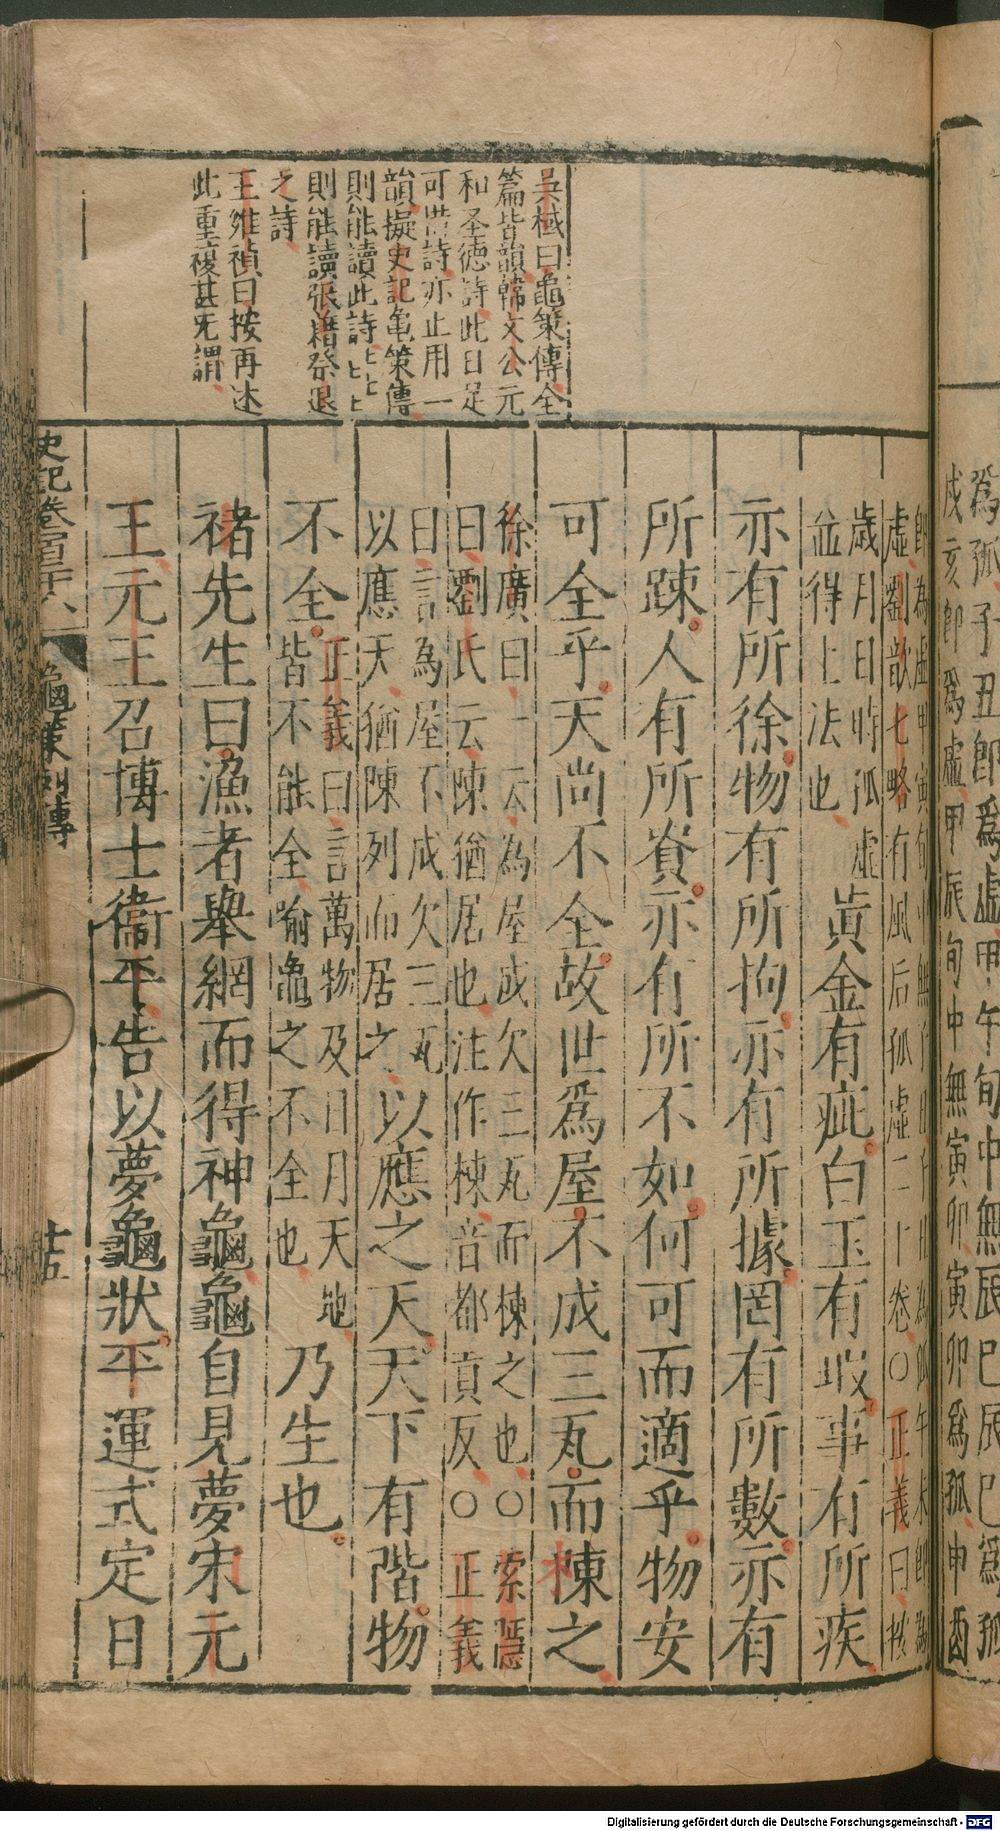 為孤子丑即為虛甲午旬中無辰巳辰巳為孤
戌亥即為虛甲辰旬中無寅卯寅卯為孤申酉
吳棫曰龜策傳全
篇皆韻韓文公元
和圣德詩此日足
可惜詩亦止用一
韻擬史記龜策傳
則能讀此詩
則能讀張籍祭退
之詩
王維禎曰按再述
此重複甚无謂
即為虛甲寅旬中無子丑子丑為孤午未即為
虛劉歆七略有風后孤虛二十卷○正義曰按
歲月日時孤虛
並得上法也
黃金有疵白玉有瑕事有所疾
亦有所徐物有所拘亦有所據罔有所數亦有
所踈人有所資亦有所不如何可而適乎物安
可全乎天尚不全故世為屋不成三瓦而棟之
徐廣曰一云為屋成欠三瓦而棟之也○索隱
曰劉氏云陳猶居也注作棟音都貢反○正義
曰言為屋不成欠三瓦
以應天猶陳列而居之
以應之天天下有階物
不全
正義曰言萬物及日月天地
皆不能全喻龜之不全也
乃生也
褚先生曰漁者舉網而得神龜龜自見夢宋元
王元王召博士衞平告以夢龜狀平運式定日
史記卷一百二十八
龜策列傳
十五
Digitalisierung gefördert durch die Deutsche Forschungsgemeinschaft - DFG